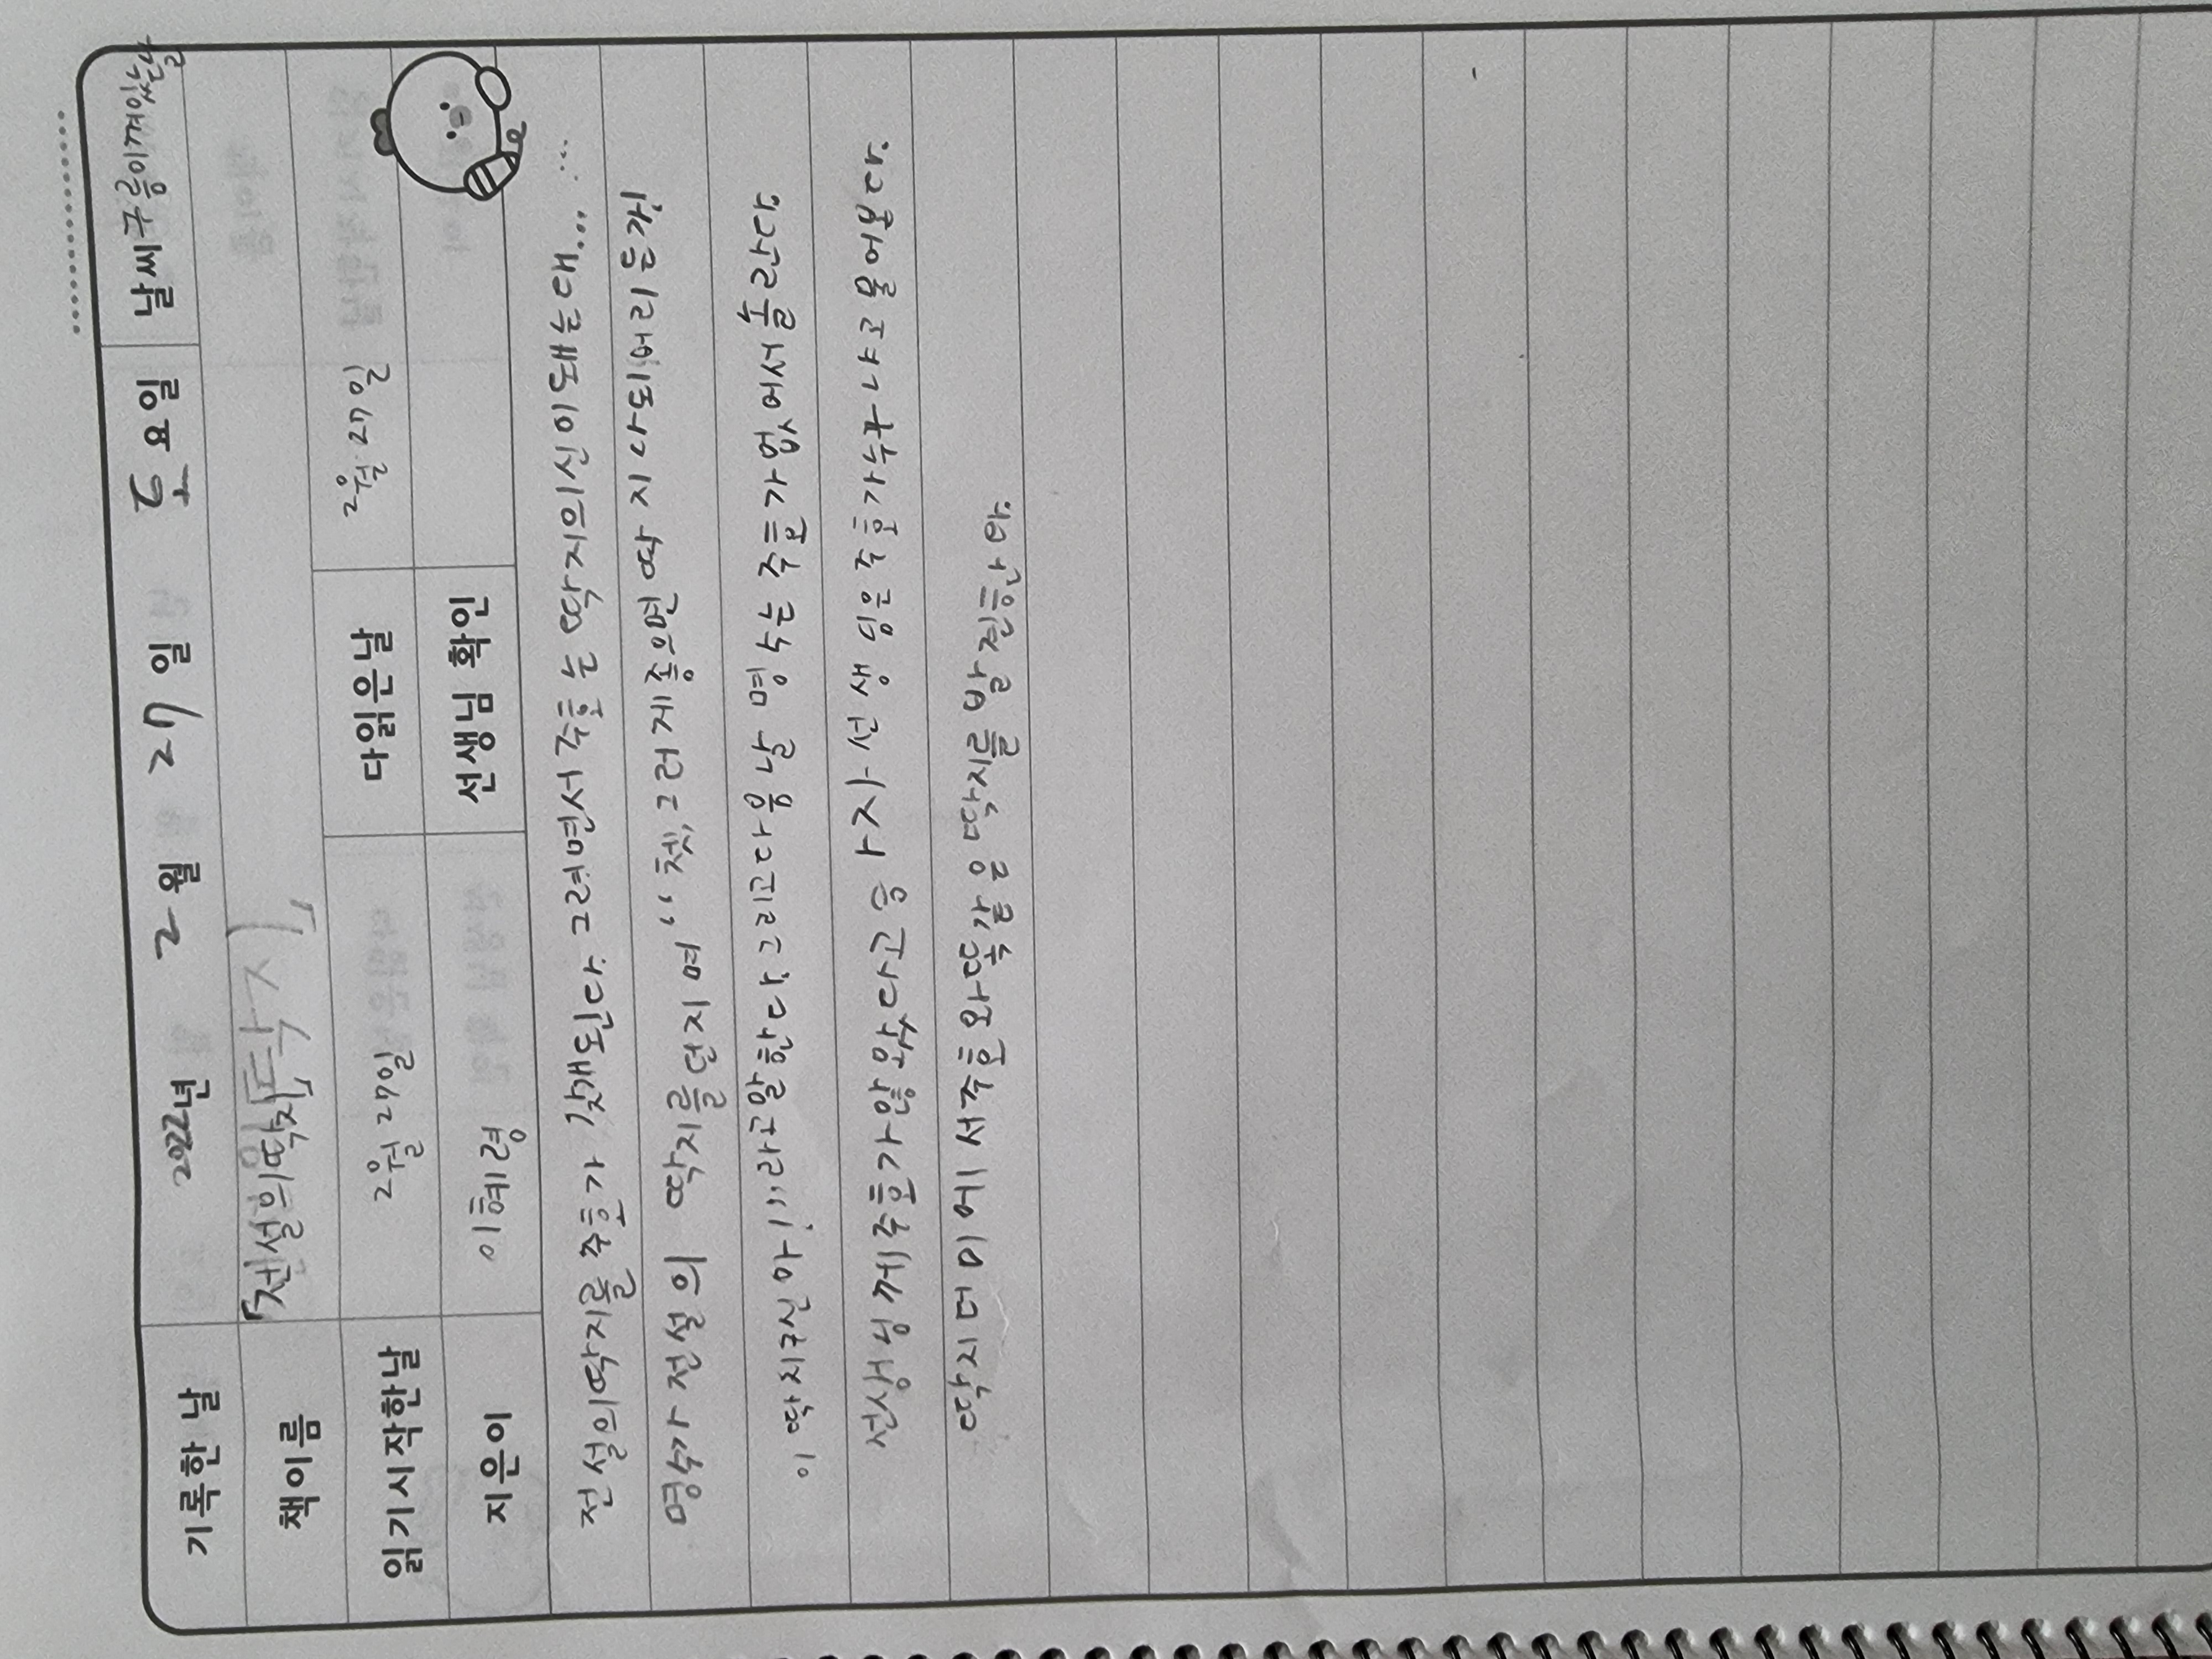 기록한 날 2022년 2월 27일 토요일 날씨 구름이껴있는날
책이름 「전설의딱지」
읽기시작한날 2월 27일 다읽은날 2월 27일
지은이 이혜령 선생님 확인
전설의딱지를 주호가 갖개된다. 그려면서 주호는 딱지의신이돼는대... ...
명수가 전설의 딱지를던지며 “쳇, 그러게좋으면 딱지나되어리든가!
이 딱지귀신아!”라고말한다. 그리고다음날 명수는 주호가없어서놀란다.
선생님께주호가않왔다고 하자 선생님은주호가누구냐고 물어본다.
딱지더미에서주호와똑같은딱지를 발견한다.